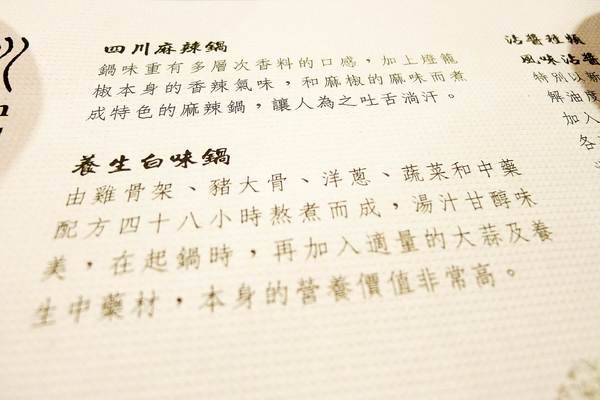 四川麻辣鍋
鍋味重有多層次香料的口感，加上燈籠
椒本身的香辣氣味，和麻椒的麻味而煮
成特色的麻辣鍋，讓人為之吐舌淌汗。
養生白味鍋
由雞骨架、豬大骨、洋蔥、蔬菜和中藥
配方四十八小時熬煮而成，湯汁甘醇味
美，在起鍋時，再加入適量的大蒜及養
生中藥材，本身的營養價值非常高。
沾醬種類
風味沾醬
特別以新
解油度
加入
各